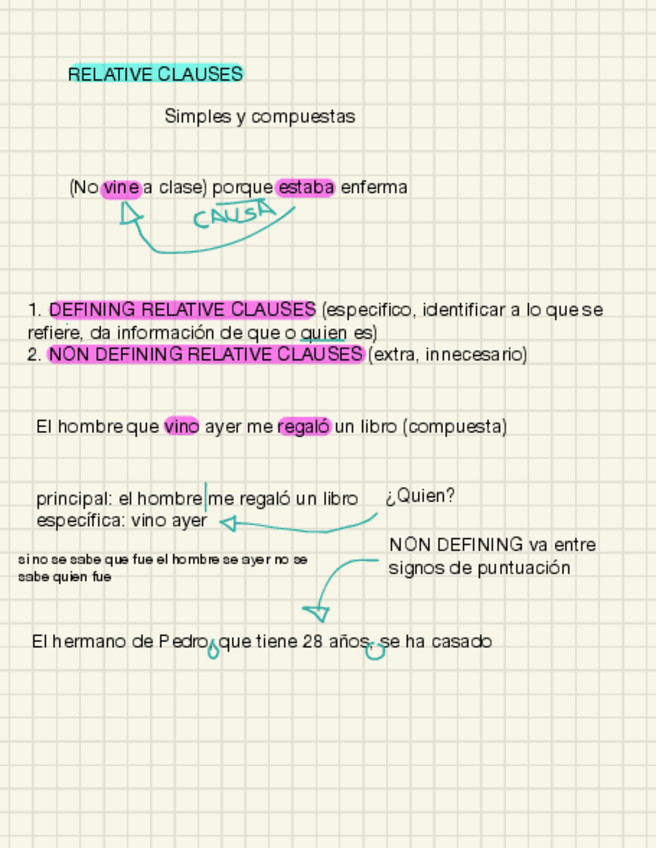 RELATIVE CLAUSES
Simples y compuestas
(No vine a clase) porque estaba enferma
CAUSA
1. DEFINING RELATIVE CLAUSES (especifico, identificar a lo que se
refiere, da información de que o quien es)
2. NON DEFINING RELATIVE CLAUSES (extra, innecesario)
El hombre que vino ayer me regaló un libro (compuesta)
principal: el hombre me regaló un libro
¿Quien?
específica: vino ayer
NON DEFINING va entre
signos de puntuación
si no se sabe que fue el hombre se ayer no se
sabe quien fue
El hermano de Pedro, que tiene 28 años, se ha casado